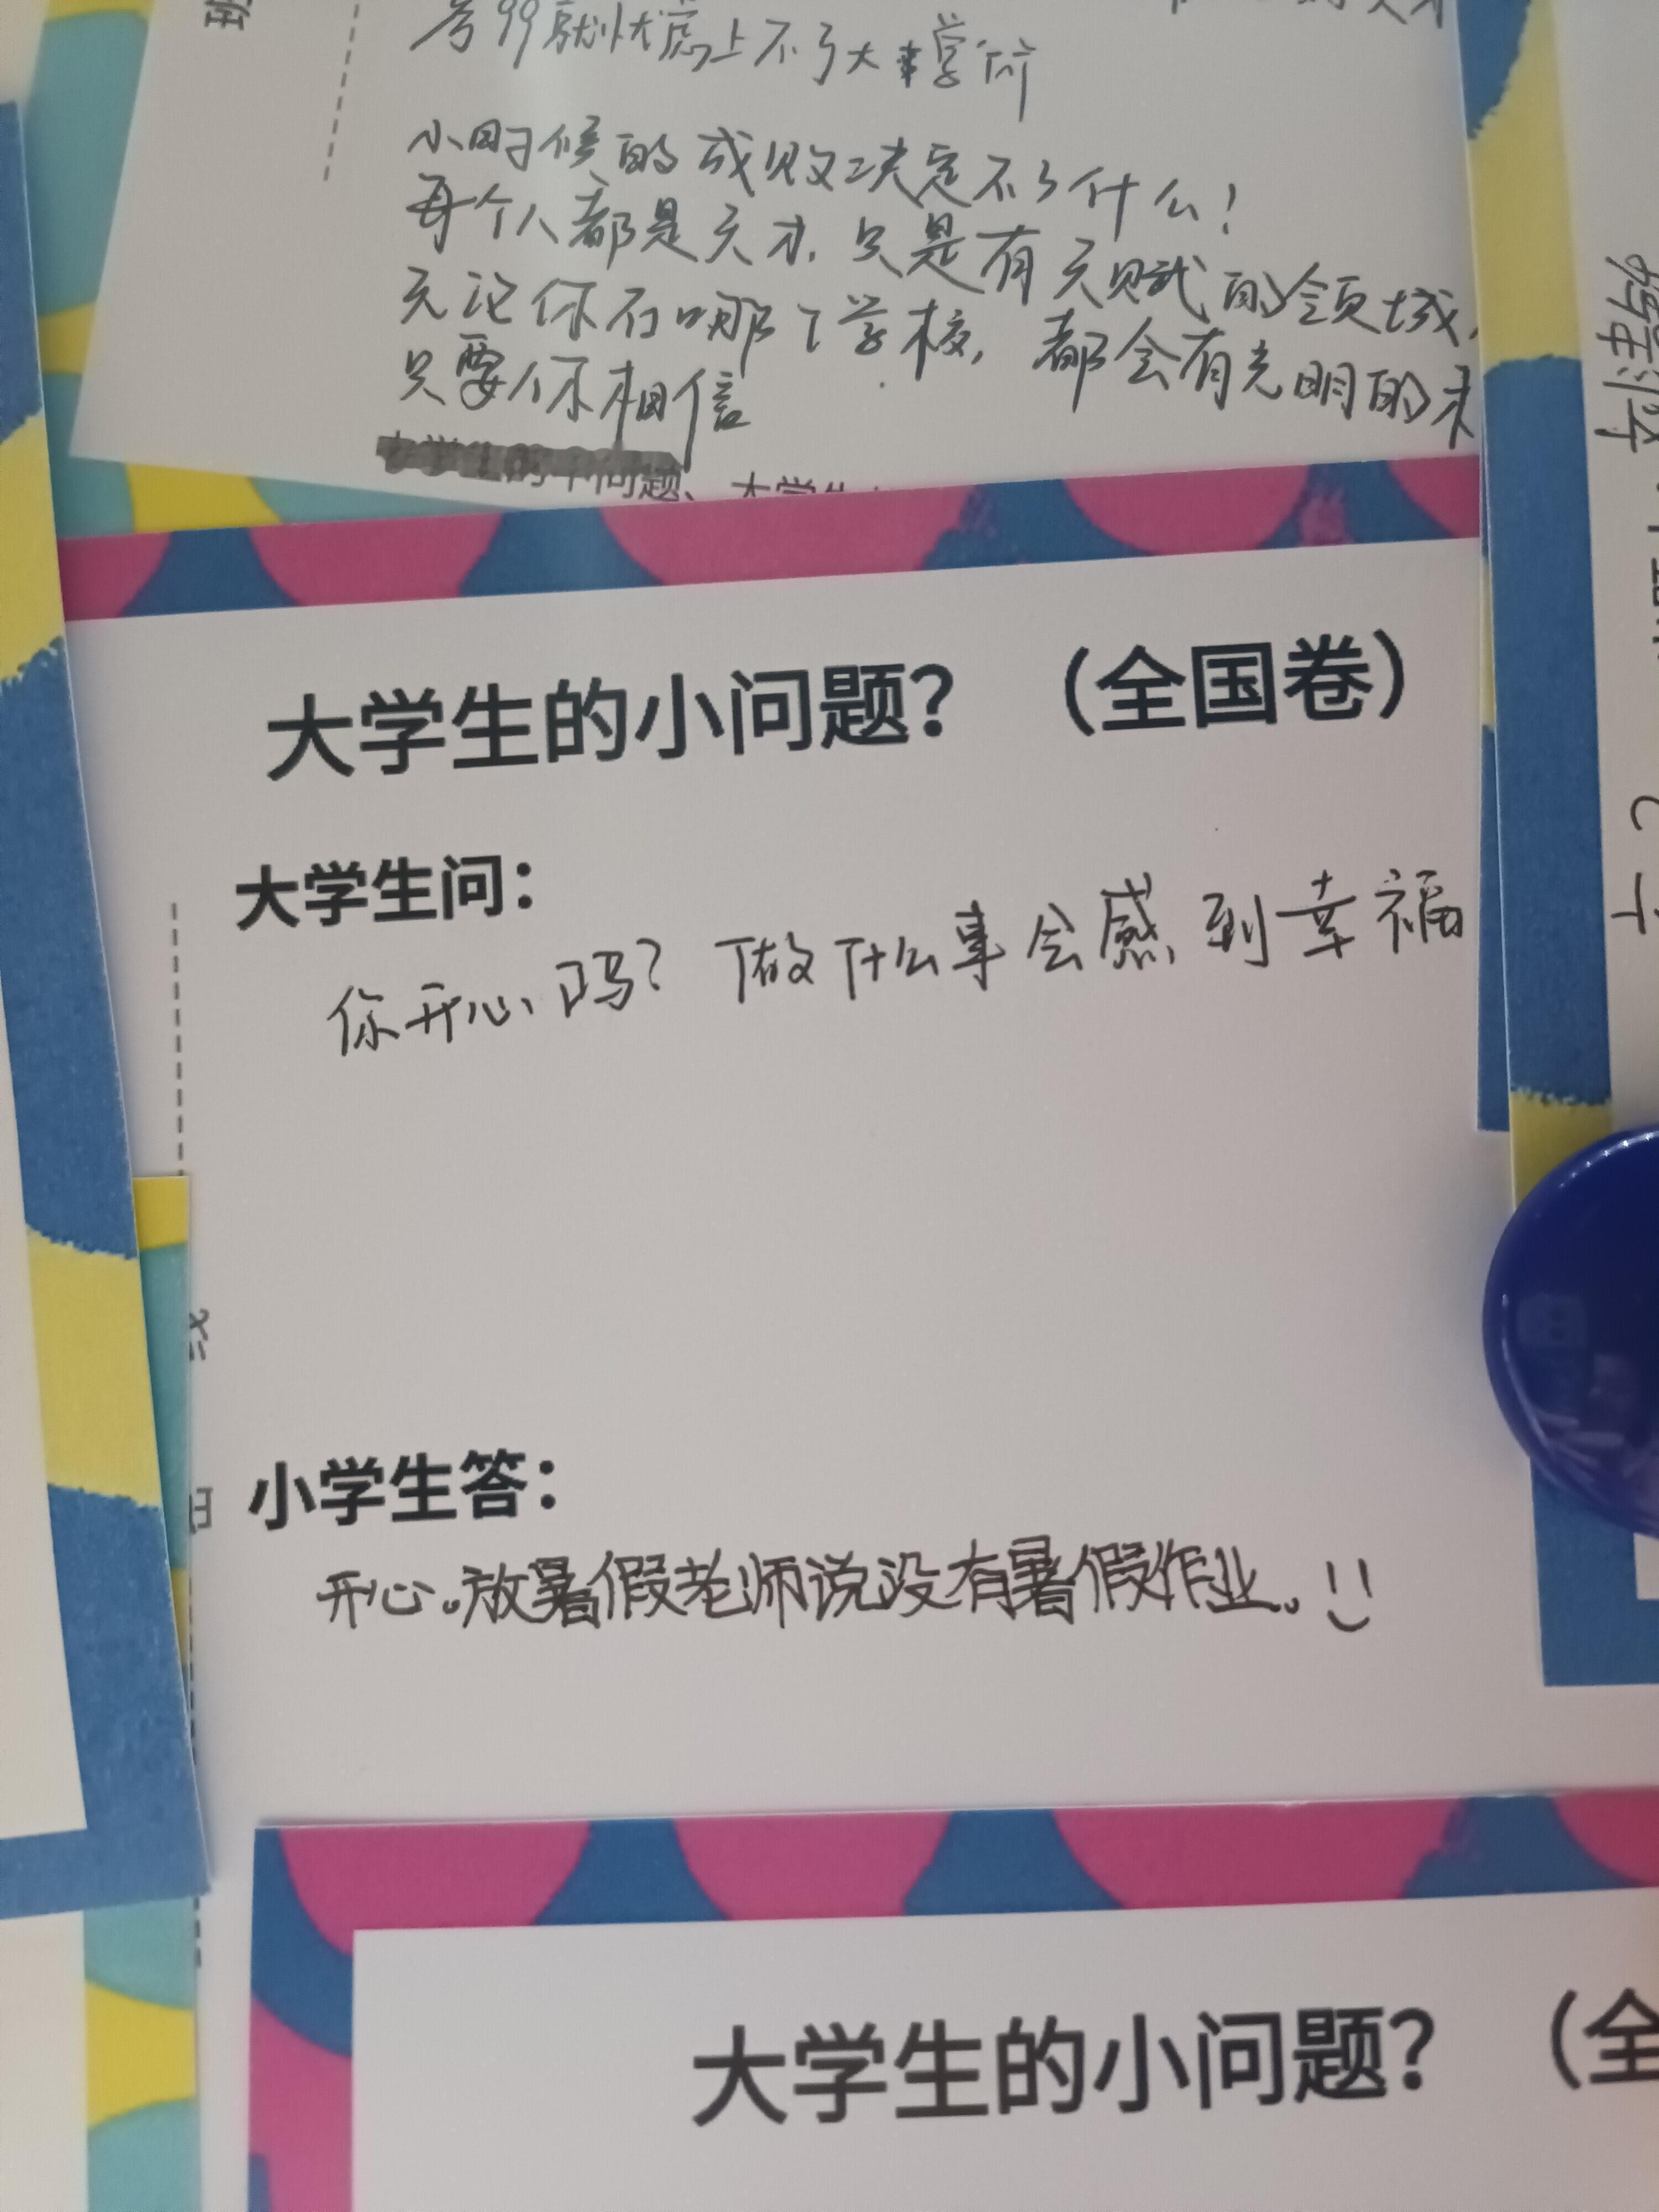 考99就忧虑上不了大学 所
小时候的成败决定不了什么！
每个人都是天才，只是有天赋的领域，
无论你在哪个学校，都会有光明的未
只要你相信
问题、大学生
大学生的小问题？（全国卷）
大学生问：
你开心吗？做什么事会感到幸福
小学生答：
开心。放暑假老师说没有暑假作业。
大学生的小问题？（全